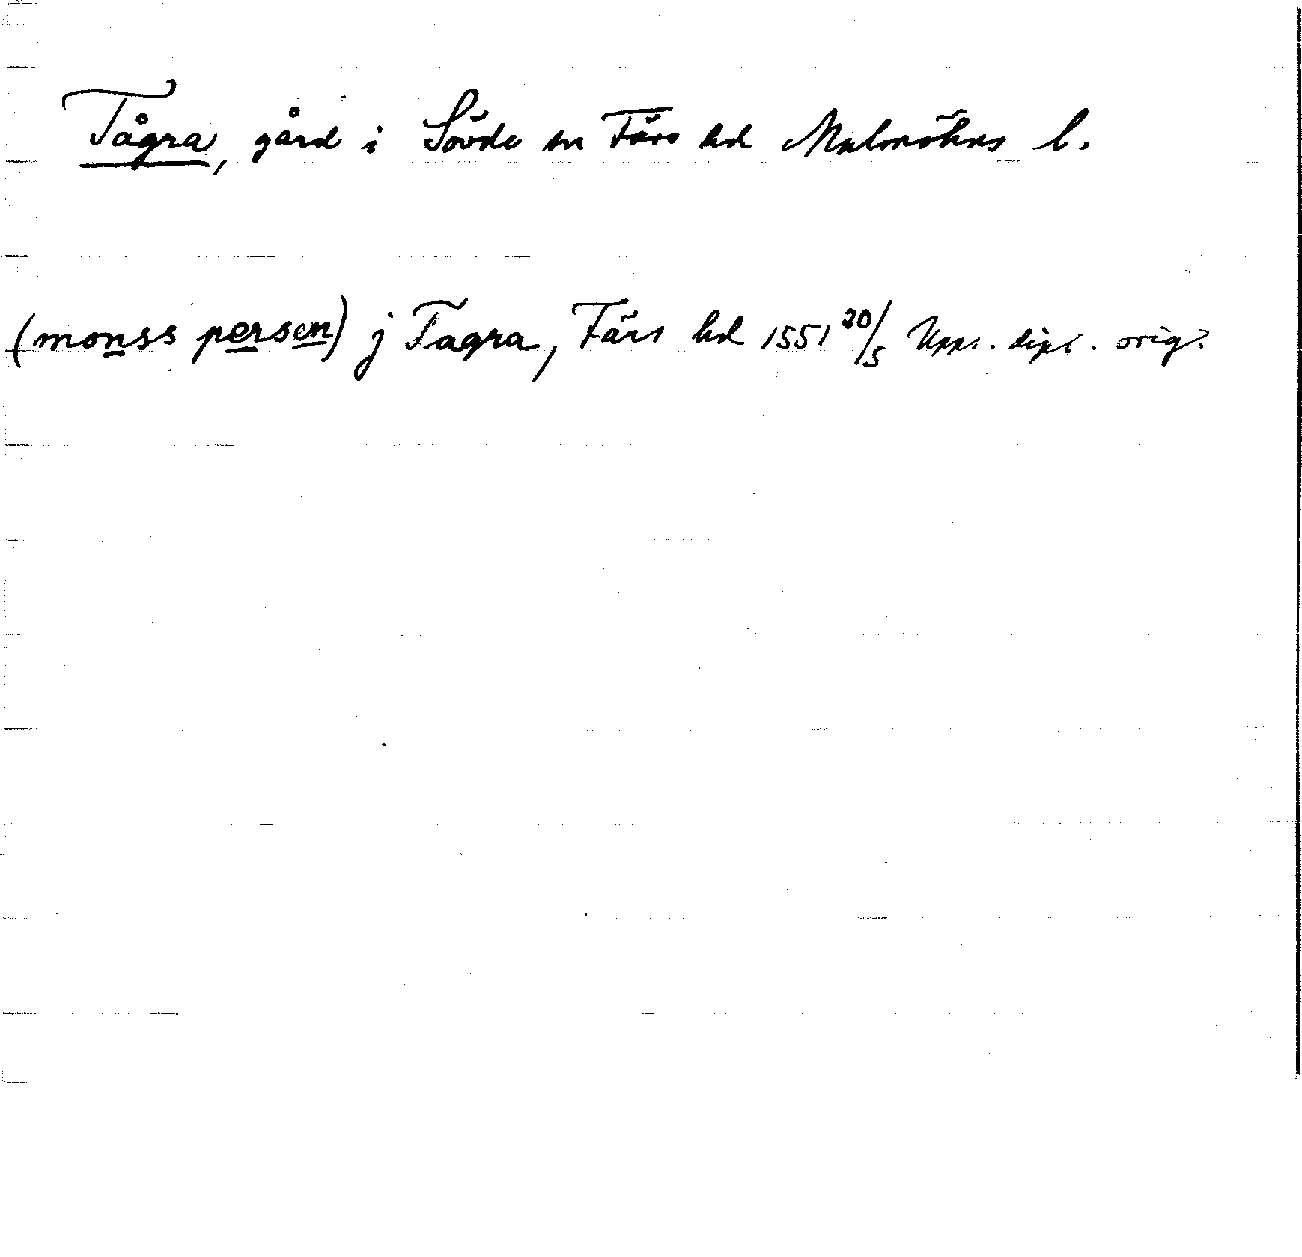 Tågra, gård i Sövde sn Färs hd Malmöhus l.
(monss persen) j Tagra, Färs hd 1551 20/5 Upps. dipl. orig.